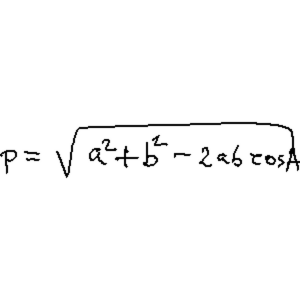 p = √(a² + b² - 2ab cosA)